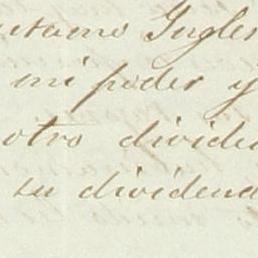 Ingles
mi poder y
otro divide
su dividend